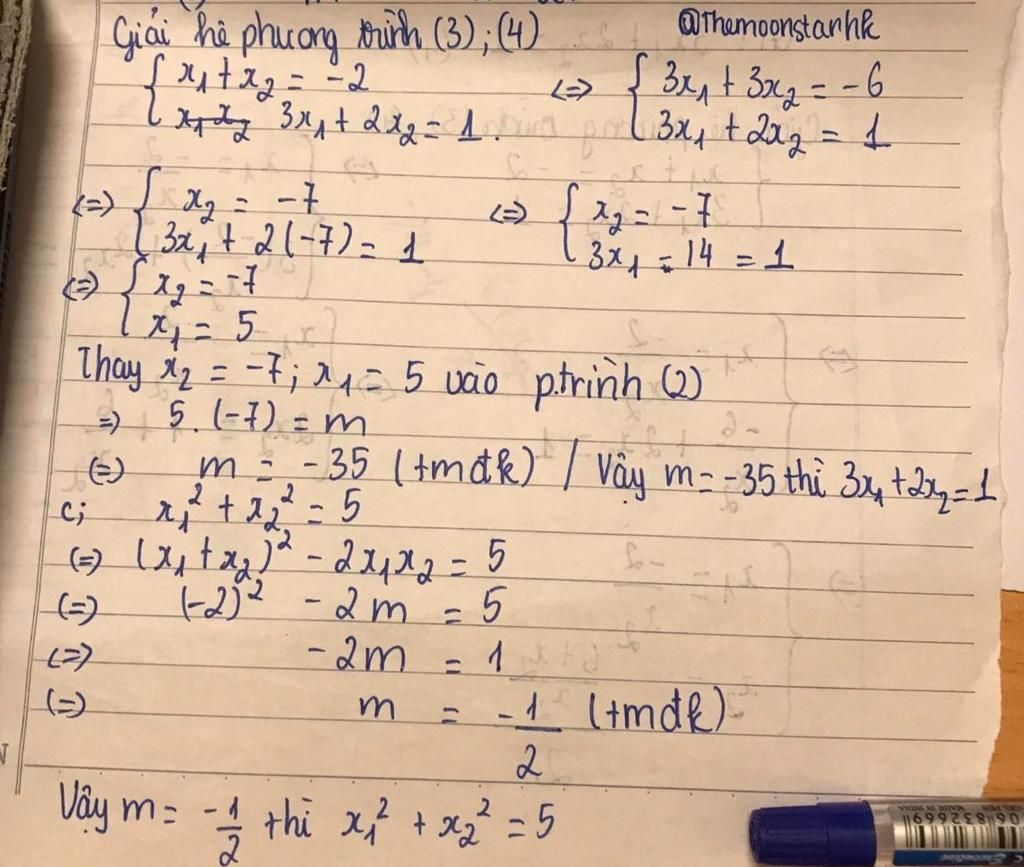 Giải hệ phương trình (3); (4) @Themoonstarhk
{ x₁ + x₂ = -2 <=> { 3x₁ + 3x₂ = -6
{ 3x₁ + 2x₂ = 1. { 3x₁ + 2x₂ = 1
<=> { x₂ = -7 <=> { x₂ = -7
{ 3x₁ + 2(-7) = 1 { 3x₁ = 14 = 1
<=> { x₂ = -7
{ x₁ = 5
Thay x₂ = -7; x₁ = 5 vào p.trình (2)
=> 5. (-7) = m
(=) m = -35 (+mđk) / Vậy m = -35 thì 3x₁ + 2x₂ = 1
c; x₁² + x₂² = 5
(=) (x₁ + x₂)² - 2x₁x₂ = 5
(=) (-2)² - 2m = 5
<=> - 2m = 1
(=) m = -1/2 (+mđk)
Vậy m = -1/2 thì x₁² + x₂² = 5
MADE IN INDIA